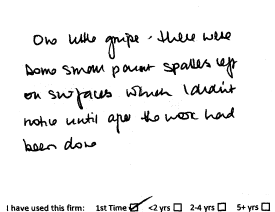 One little gripe - there were
some small paint splashes left
on surfaces which I didn't
notice until after the work had
been done
I have used this firm: 1st Time ☑ <2 yrs ☐ 2-4 yrs ☐ 5+ yrs ☐